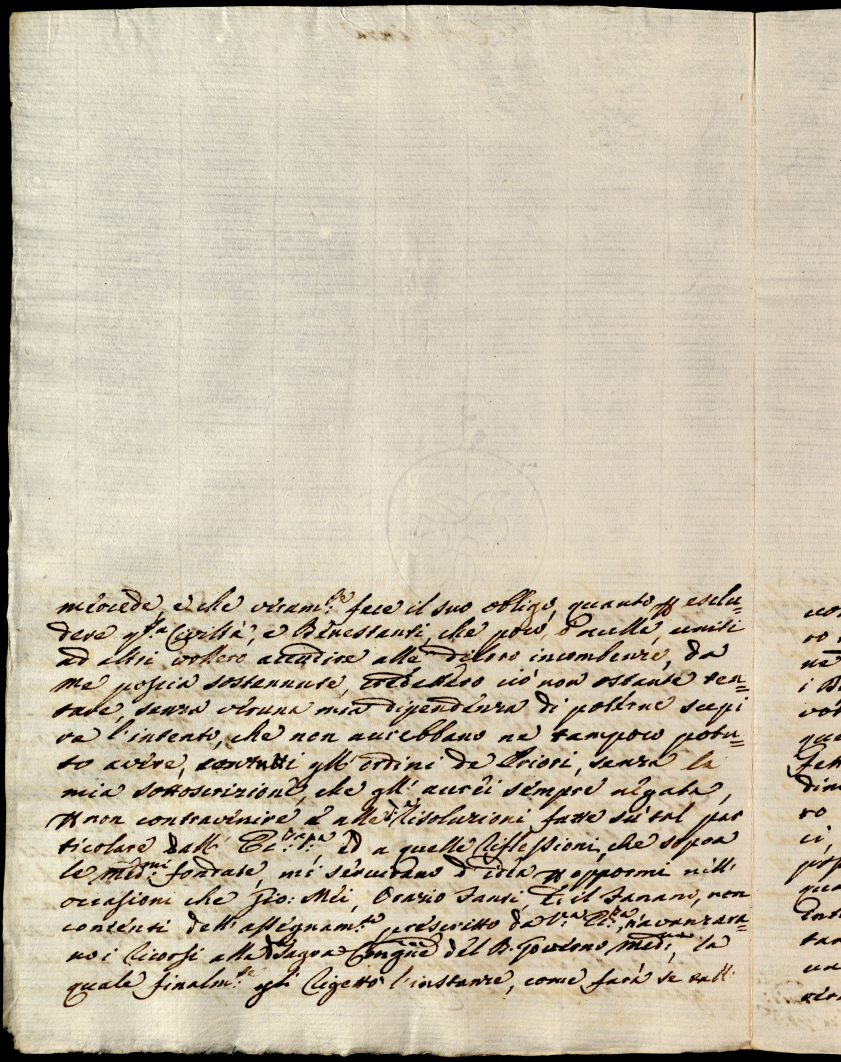 mercede, e che veram.te fece il suo obligo, quanto p esclu=
dere q.sta Civiltà, e Benestanti, che poco, ò nulla, uniti
ad altri vollero accudire alle di loro incombenze, da
me poscia sostennute, credettero ciò non ostante ten=
tare, senza veruna mia dipendenza di poterne scupi
re l'intento, che non aurebbano ne tampoco potu=
to avere, con tutti gli ordini de Priori, senza la
mia sottoscrizione, che gli aurei sempre negata,
p non contravenire è alle Risoluzioni fatte sù tal par
ticolare dall' Ed a quelle riflessioni, che sopra
le med.me fondate, mi servirano d'idea p oppormi nell'
occasioni che Gio: Mei, Orazio Santi, Et il Sanani, non
contenti dell' assegnam.to prescritto da V.ra avanzara=
no i ricorsi alla Sagra Congne del B. Governo med.ma, la
quale finalm.te gli rigettò l'instanze, come farà se dall'